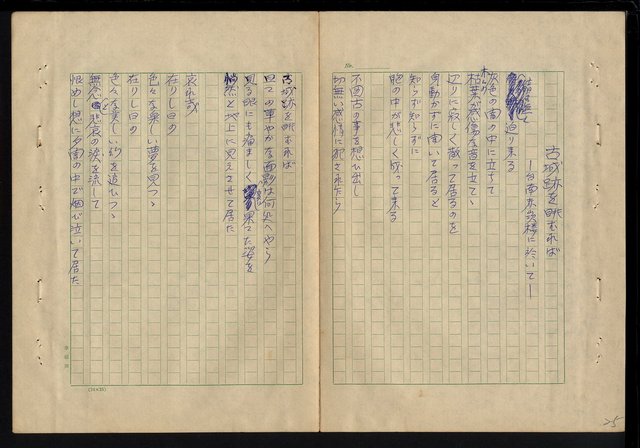 古城跡を眺むれば
―台南赤崁樓に於いて―
迫り來る
灰色の闇の中に立ちて
枯葉が感傷な音を立てゝ
辺りに寂しく散って居るのを
身動かずに聞いて居ると
知らず知らずに
胸の中が悲しく成って来る
不図古の事を想ひ出し
切無い感情に犯されたら
古城跡を眺むれば
曰ての華やかな面影は何処へやら
見る眼にも痛ましく果てた姿を
悄然と地上に見えさせて居た
哀れが
在りし日の
色々な楽しい夢を見つゝ
在りし日の
色々な美しい幻を追ひつゝ
無念と悲哀の涙を流して
恨めし想に夕闇の中で咽び泣いて居た
No.
(10×25)
25